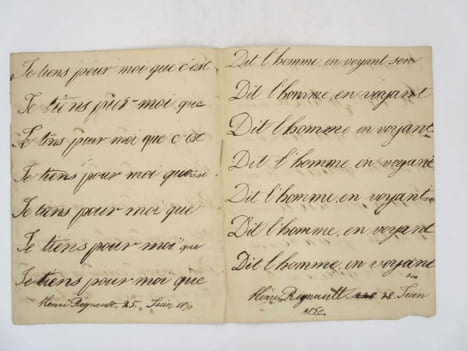 Je tiens pour moi que c'est
Je tiens pour moi que
Je tiens pour moi que c'est
Je tiens pour moi que c'est
Je tiens pour moi que
Je tiens pour moi que
Je tiens pour moi que
Henri Regnault, 25. Juin
Dit l'homme, en voyant son
Dit l'homme, en voyant
Dit l'homme, en voyant
Dit l'homme, en voyant
Dit l'homme, en voyant
Dit l'homme, en voyant
Dit l'homme, en voyant
Henri Regnault. 28 Juin